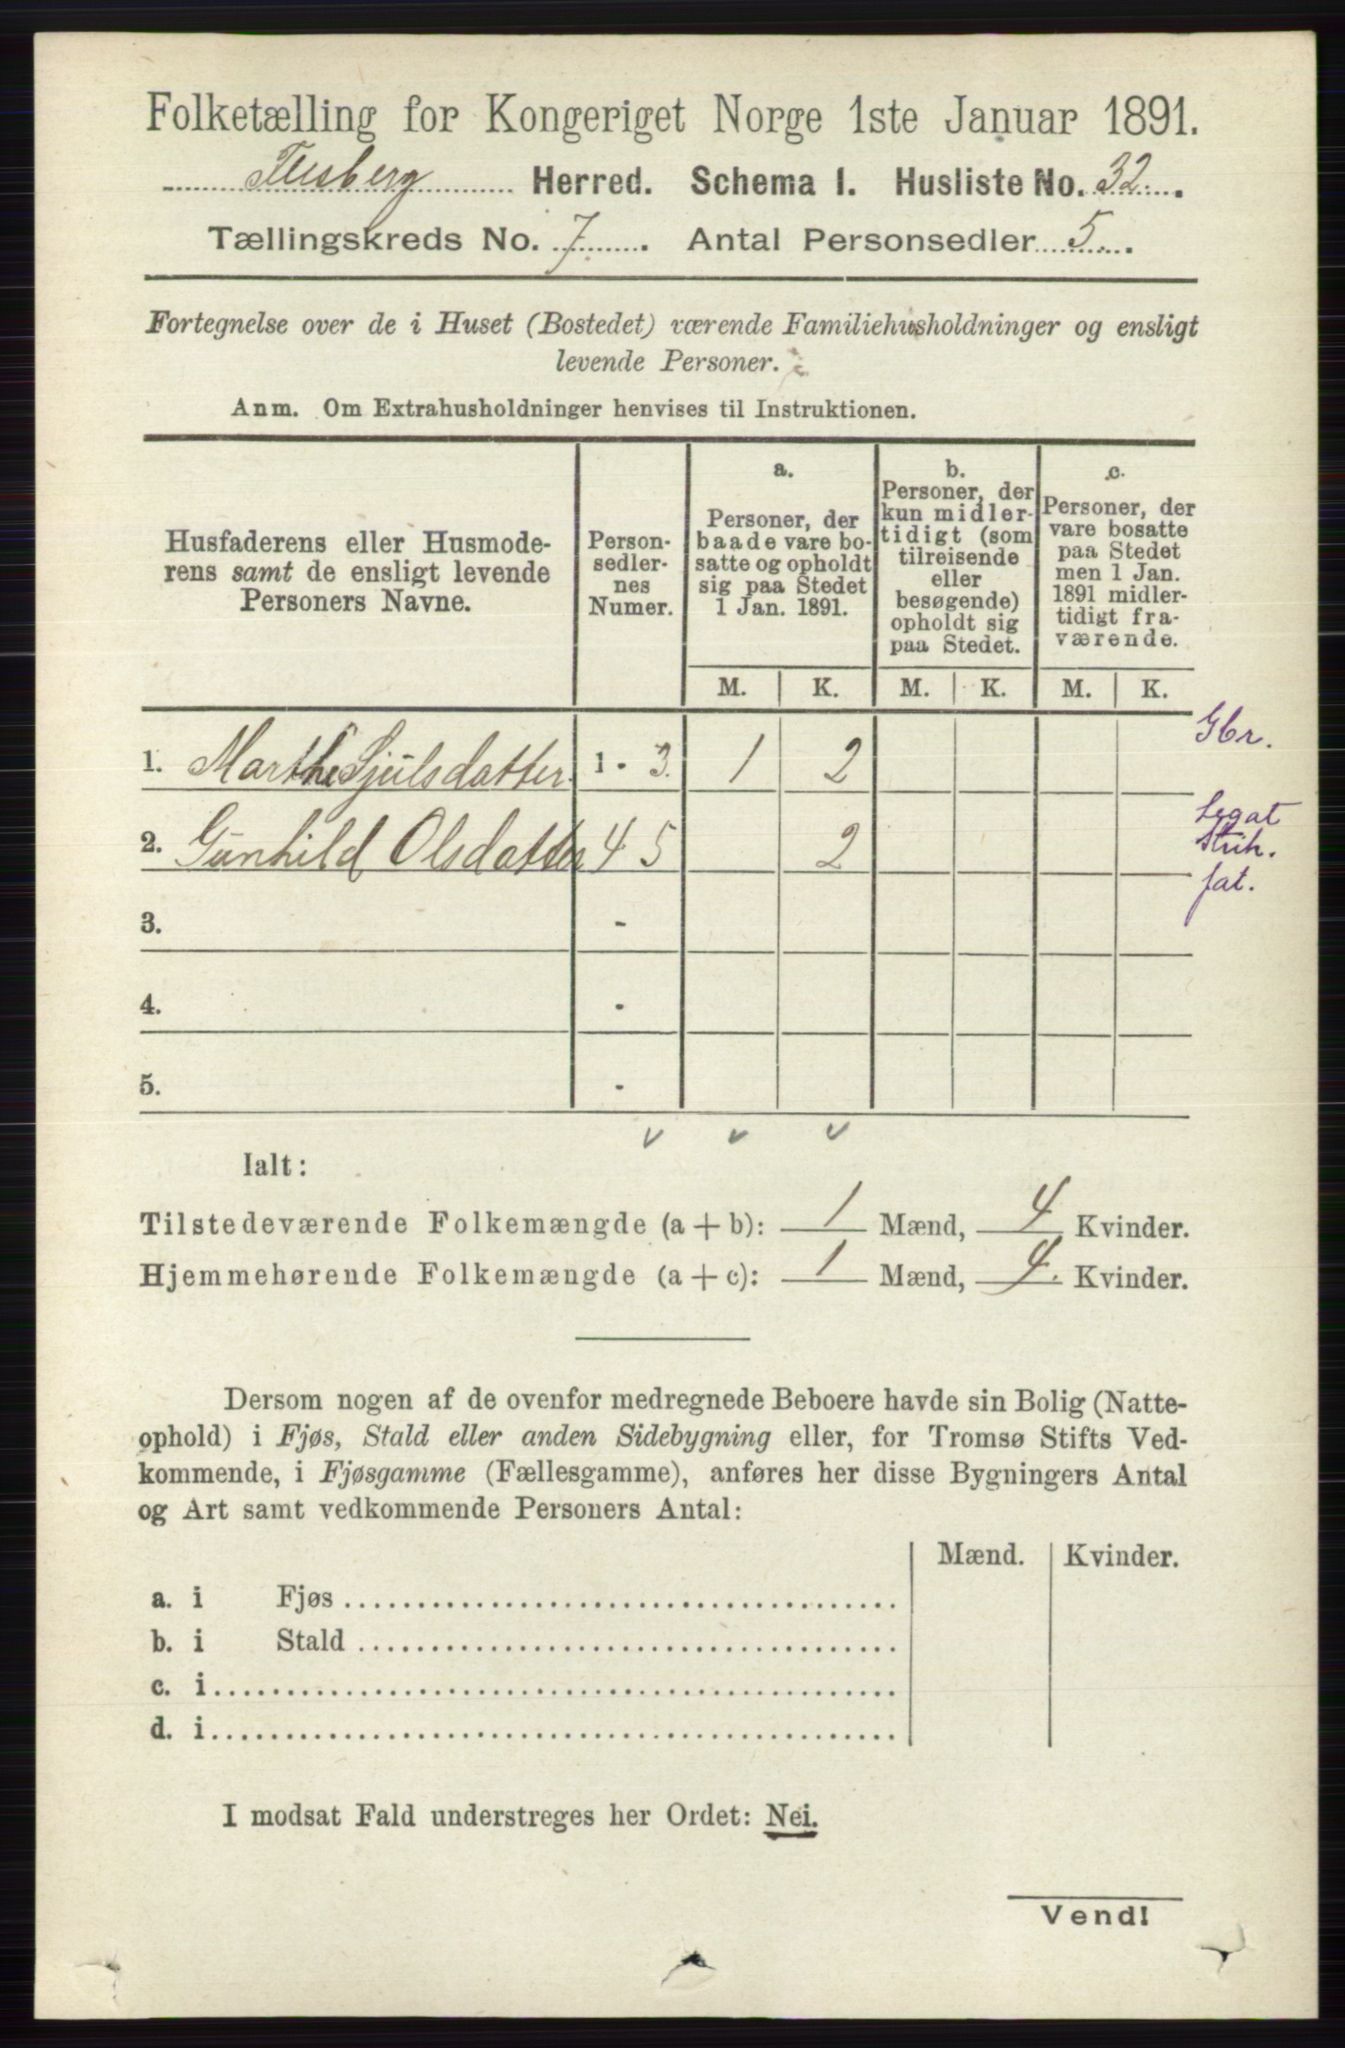 Folketælling for Kongeriget Norge 1ste Januar 1891.
Flesberg Herred. Schema I. Husliste No. 32.
Tællingskreds No. 7. Antal Personsedler 5.
Fortegnelse over de i Huset (Bostedet) værende Familiehusholdninger og ensligt
levende Personer.
Anm. Om Extrahusholdninger henvises til Instruktionen.
Husfaderens eller Husmode-
rens samt de ensligt levende
Personers Navne.
Person-
sedler-
nes
Numer.
a.
Personer, der
baade vare bo-
satte og opholdt
sig paa Stedet
1 Jan. 1891.
b.
Personer, der
kun midler-
tidigt (som
tilreisende
eller
besøgende)
opholdt sig
paa Stedet.
c.
Personer, der
vare bosatte
paa Stedet
men 1 Jan.
1891 midler-
tidigt fra-
værende.
M. K. M. K. M. K.
1. Marthe Sjulsdatter 1 - 3. 1 2 Gbr.
2. Gunhild Olsdatter 4 5 2 Legat
fat.
3. -
4. -
5. -
Ialt:
Tilstedeværende Folkemængde (a + b): 1 Mænd, 4 Kvinder.
Hjemmehørende Folkemængde (a + c): 1 Mænd, 4. Kvinder.
Dersom nogen af de ovenfor medregnede Beboere havde sin Bolig (Natte-
ophold) i Fjøs, Stald eller anden Sidebygning eller, for Tromsø Stifts Ved-
kommende, i Fjøsgamme (Fællesgamme), anføres her disse Bygningers Antal
og Art samt vedkommende Personers Antal:
Mænd. Kvinder.
a. i Fjøs
b. i Stald
c. i
d. i
I modsat Fald understreges her Ordet: Nei.
Vend!